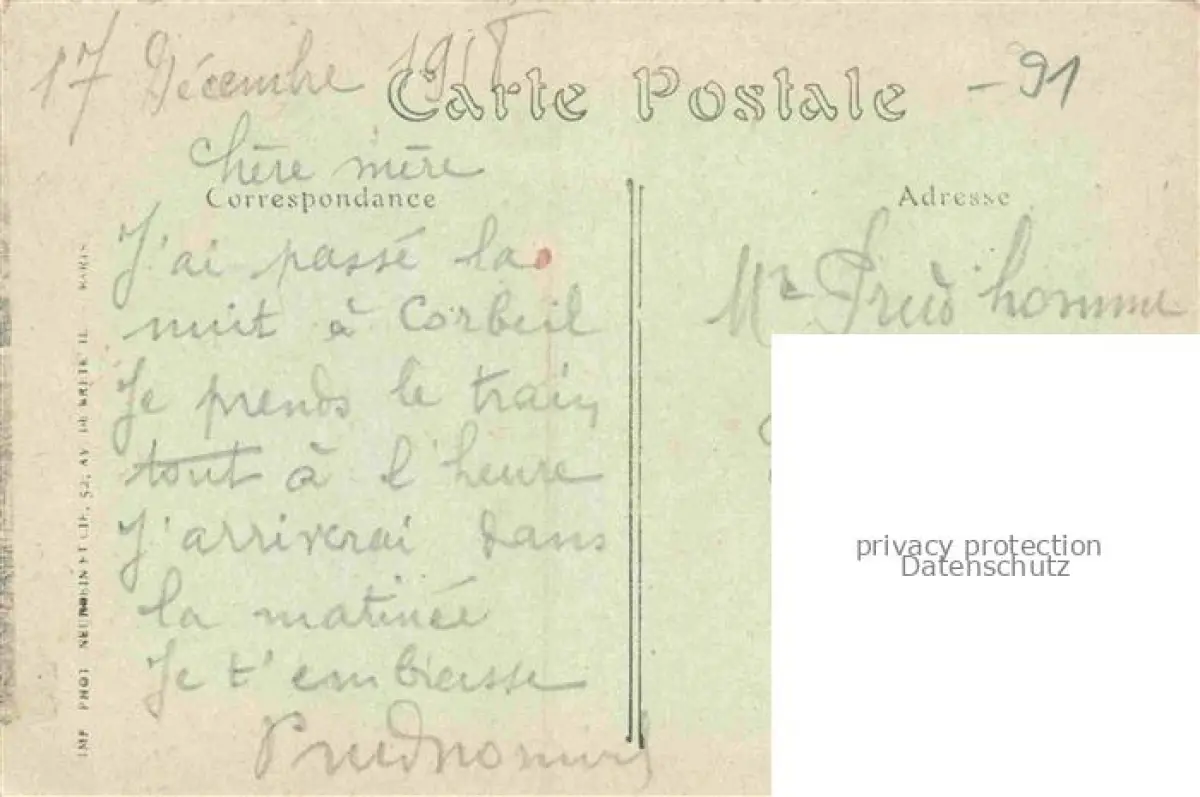 17 Décembre 1918
Carte Postale
-91
Chère mère
Correspondance
J'ai passé la
nuit à Corbeil
Je prends le train
tout à l'heure
J'arriverai dans
la matinée
Je t'embrasse
Prudhomme
Adresse
Mr Prud'homme
privacy protection
Datenschutz
IMP PHOT NEURDEIN ET CIE, 52, AV. DE BRETEUIL - PARIS